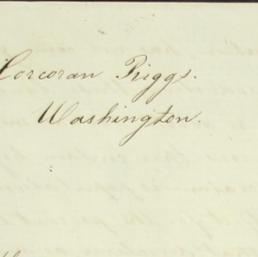 Corcoran Riggs.
Washington.